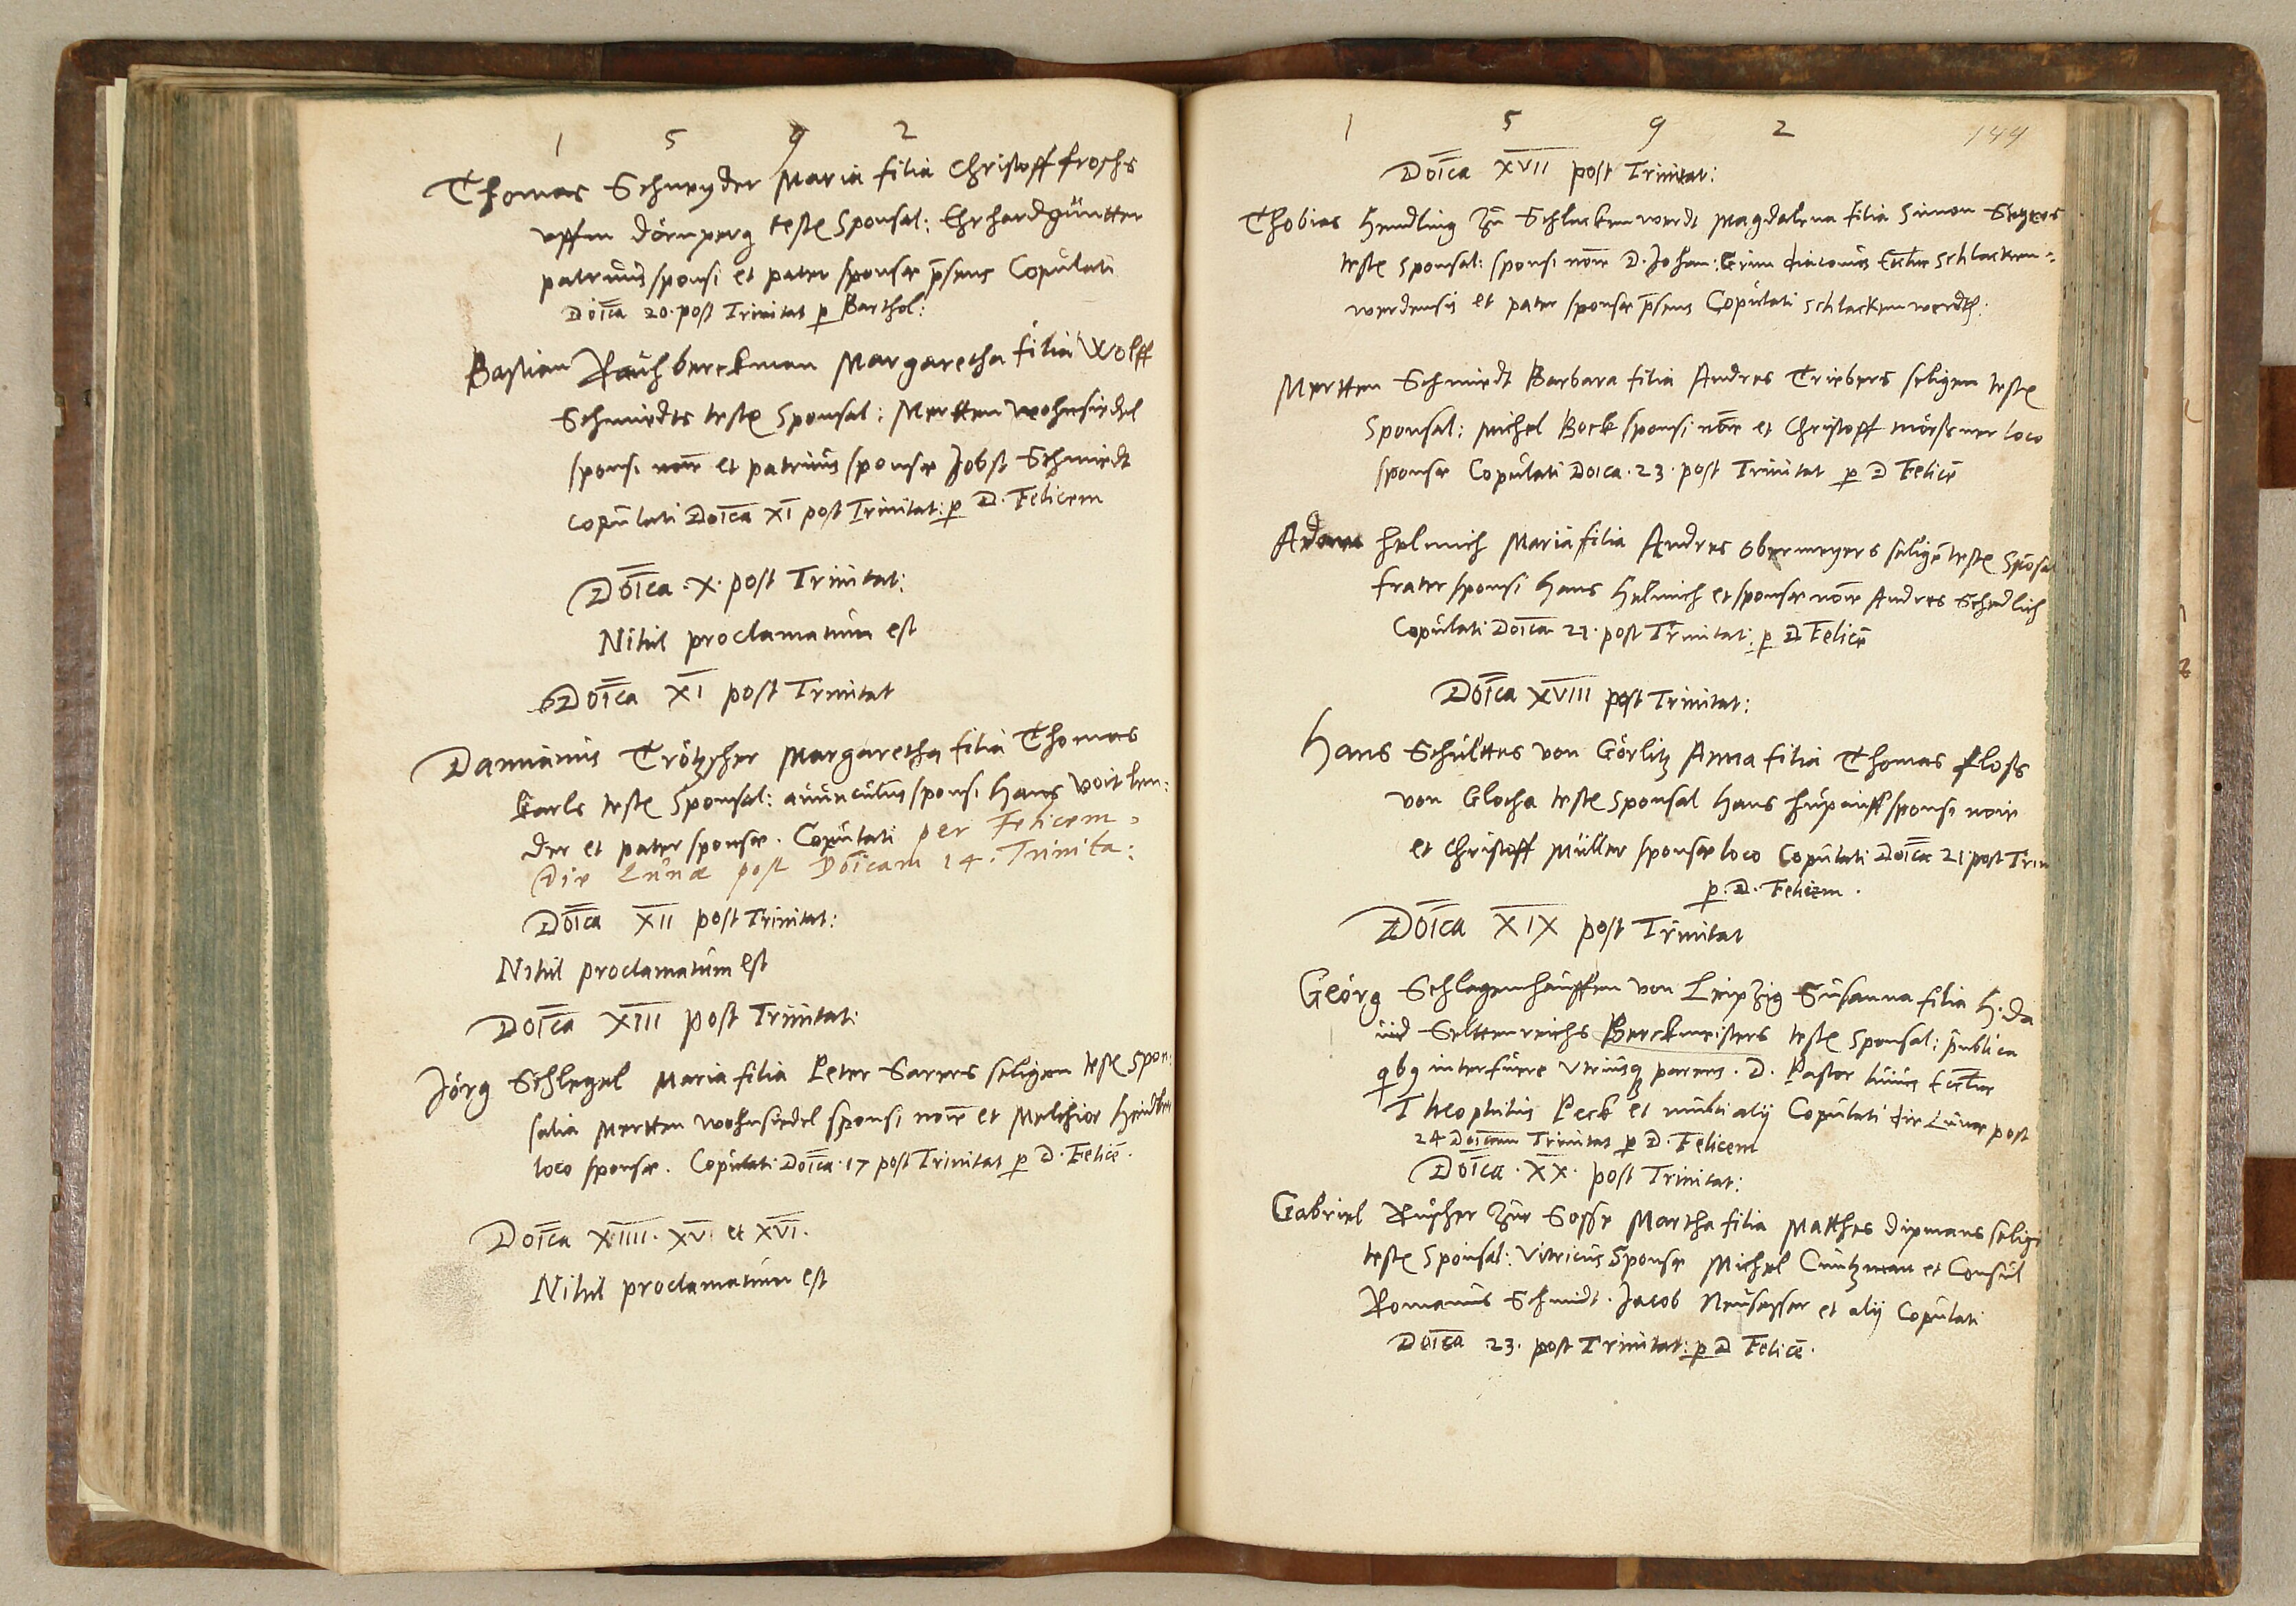 1 5 9 2
Thomas Schneyder Maria filia Christoff froschs
uffm dörnperg teste Sponsal: Ehrhard güntter
patruus sponsi et pater sponsæ p̄sens Copulati
Doi͞ca 20. post Trinitat p Barthol:
Bastian Rauhberckman Margaretha filia Wolff
Schmiedts teste Sponsal: Mertten Wohnsiedel
sponsi noi͞e et patruus sponsæ Jobst Schmiedt
copulati Doi͞ca XI post Trinitat: p D. Felicem
Doi͞ca . X . post Trinitat:
Nihil proclamatum est
Doi͞ca XI post Trinitat
Damianus Trötzscher Margaretha filia Thomas
Karls teste Sponsal: avunculus sponsi Hans Voit len:
der et pater sponsæ. Copulati per Felicem
die Lunæ post Doi͞cam 14. Trinita:
Doi͞ca XII post Trinitat:
Nihil proclamatum est
Doi͞ca XIII post Trinitat:
Jörg Schlegel Maria filia Peter Sarers seligen teste Spon:
salia Mertten Wohnsiedel sponsi noi͞e et Melchior
loco sponsæ. Copulati Doi͞ca . 17 post Trinitat p D. Felicē.
Doi͞ca XIIII. XV. et XVI.
Nihil proclamatum est
1 5 9 2
144
Doi͞ca XVII post Trinitat:
Thobias Hendling Zu Schlackenwerdt Magdalena filia Simon
teste Sponsal: sponsi noi͞e D. Johan: Grim diaconus Eccl͞iæ Schlacken:
werdensis et pater sponsæ p̄sens Copulati Schlackenwerdt.
Mertten Schmiedt Barbara filia Andres Triebers seligen teste
Sponsal: Michel Bock sponsi noi͞e et Christoff Mörsner loco
sponsæ Copulati Doi͞ca . 23 . post Trinitat p D Felicē
Adam Helmich Maria filia Andres Obermeyers seligē teste Spōsal
frater sponsi Hans Helmich et sponsæ noi͞e Andres Schedlich
Copulati Doi͞ca 21. post Trinitat: p D Felicē
Doi͞ca XVIII post Trinitat:
Hans Schulttes von Görlitz Anna filia Thomas floss
von Glocha teste Sponsal Hans Hupauff sponsi noi͞e
et Christoff Müller sponsæ loco Copulati Doi͞ca 21 post Trin
p. D. Felicem.
Doi͞ca XIX post Trinitat
Georg Schlagenhauffen von Leipzig Susanna filia H. Da
uid Selttenreichs Berckmeisters teste Sponsal: publica
qbq interfuere utriusq parens. D. Pastor huius Eccl͞iæ
Theophilus Peck et multi alij Copulati die Lunæ post
24 Doi͞cam Trinitat p D. Felicem
Doi͞ca . XX . post Trinitat:
Gabriel Ruscher Zur Sosse Martha filia Matthes Dipmans selige
teste Sponsal: Vitricus Sponsæ Michel Cuntzman et Consul
Romanus Schmidt. Jacob Neusesser et alij Copulati
Doi͞ca 23. post Trinitat: p D Felicē.